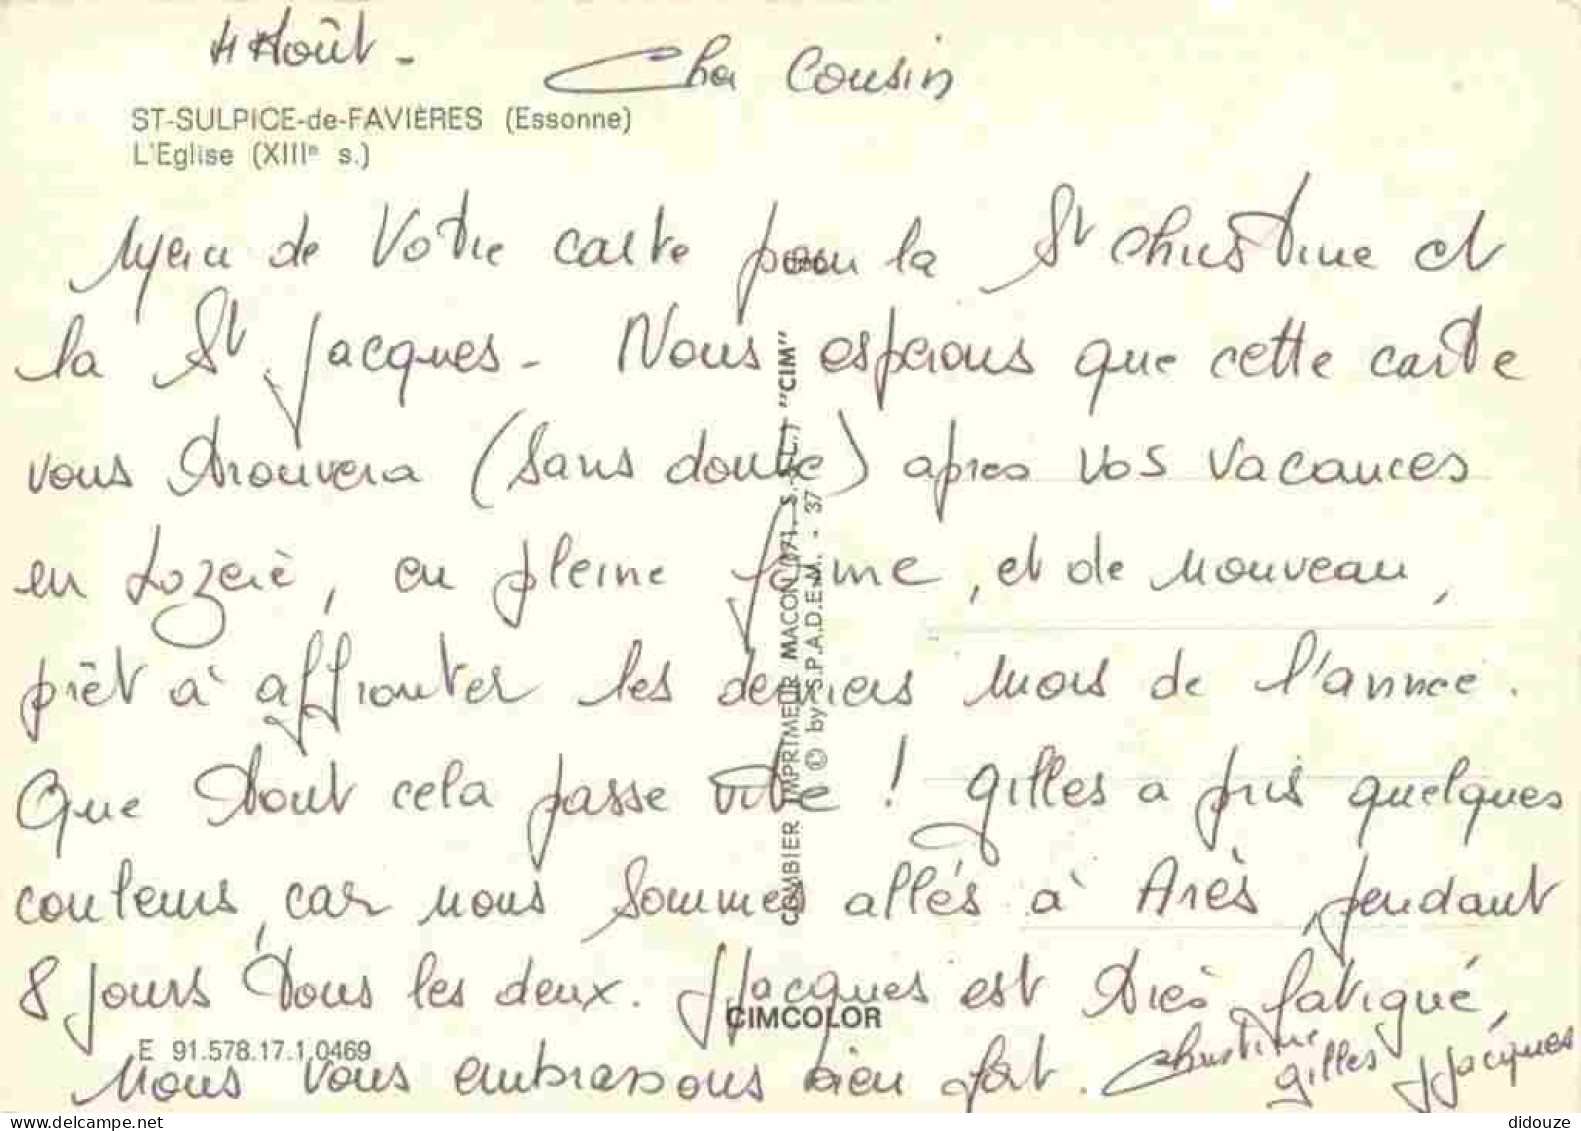 4 Août -
Cher Cousin
ST-SULPICE-de-FAVIÈRES (Essonne)
L'Eglise (XIIIe s.)
Merci de Votre carte pour la St Christine et
la St Jacques - Nous espérons que cette carte
vous trouvera (sans doute) après vos vacances
en Lozère, en pleine forme, et de nouveau,
prêt à affronter les derniers mois de l'année.
Que tout cela passe vite ! Gilles a pris quelques
couleurs, car nous sommes allés à Arès, pendant
8 jours tous les deux. JJacques est très fatigué,
Nous vous embrassons bien fort. Christine
Gilles JJacques
COMBIER IMPRIMEUR MACON (71. S.-&-L.) "CIM"
© by S.P.A.D.E.M. - 37
CIMCOLOR
E 91.578.17.1.0469
delcampe.net
didouze